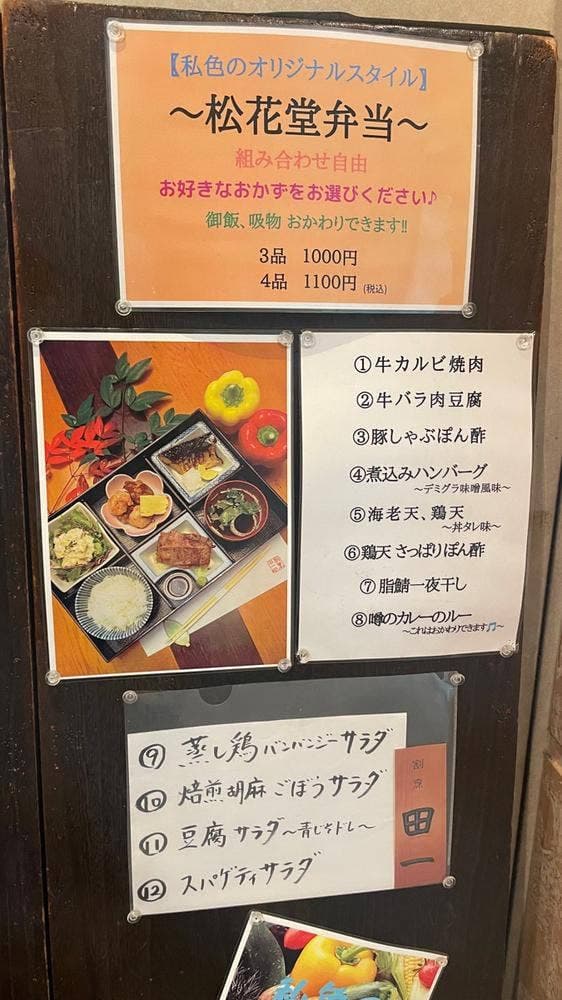 【私色のオリジナルスタイル】
～松花堂弁当～
組み合わせ自由
お好きなおかずをお選びください♪
御飯、吸物 おかわりできます!!
3品 1000円
4品 1100円 (税込)
①牛カルビ焼肉
②牛バラ肉豆腐
③豚しゃぶぽん酢
④煮込みハンバーグ
～デミグラ味噌風味～
⑤海老天、鶏天
～丼タレ味～
⑥鶏天 さっぱりぽん酢
⑦脂鯖一夜干し
⑧噂のカレーのルー
～これはおかわりできます🎵～
⑨ 蒸し鶏バンバンジーサラダ
⑩ 焙煎胡麻ごぼうサラダ
⑪ 豆腐サラダ～青じそドレ～
⑫ スパゲティサラダ
割烹
田一
私色